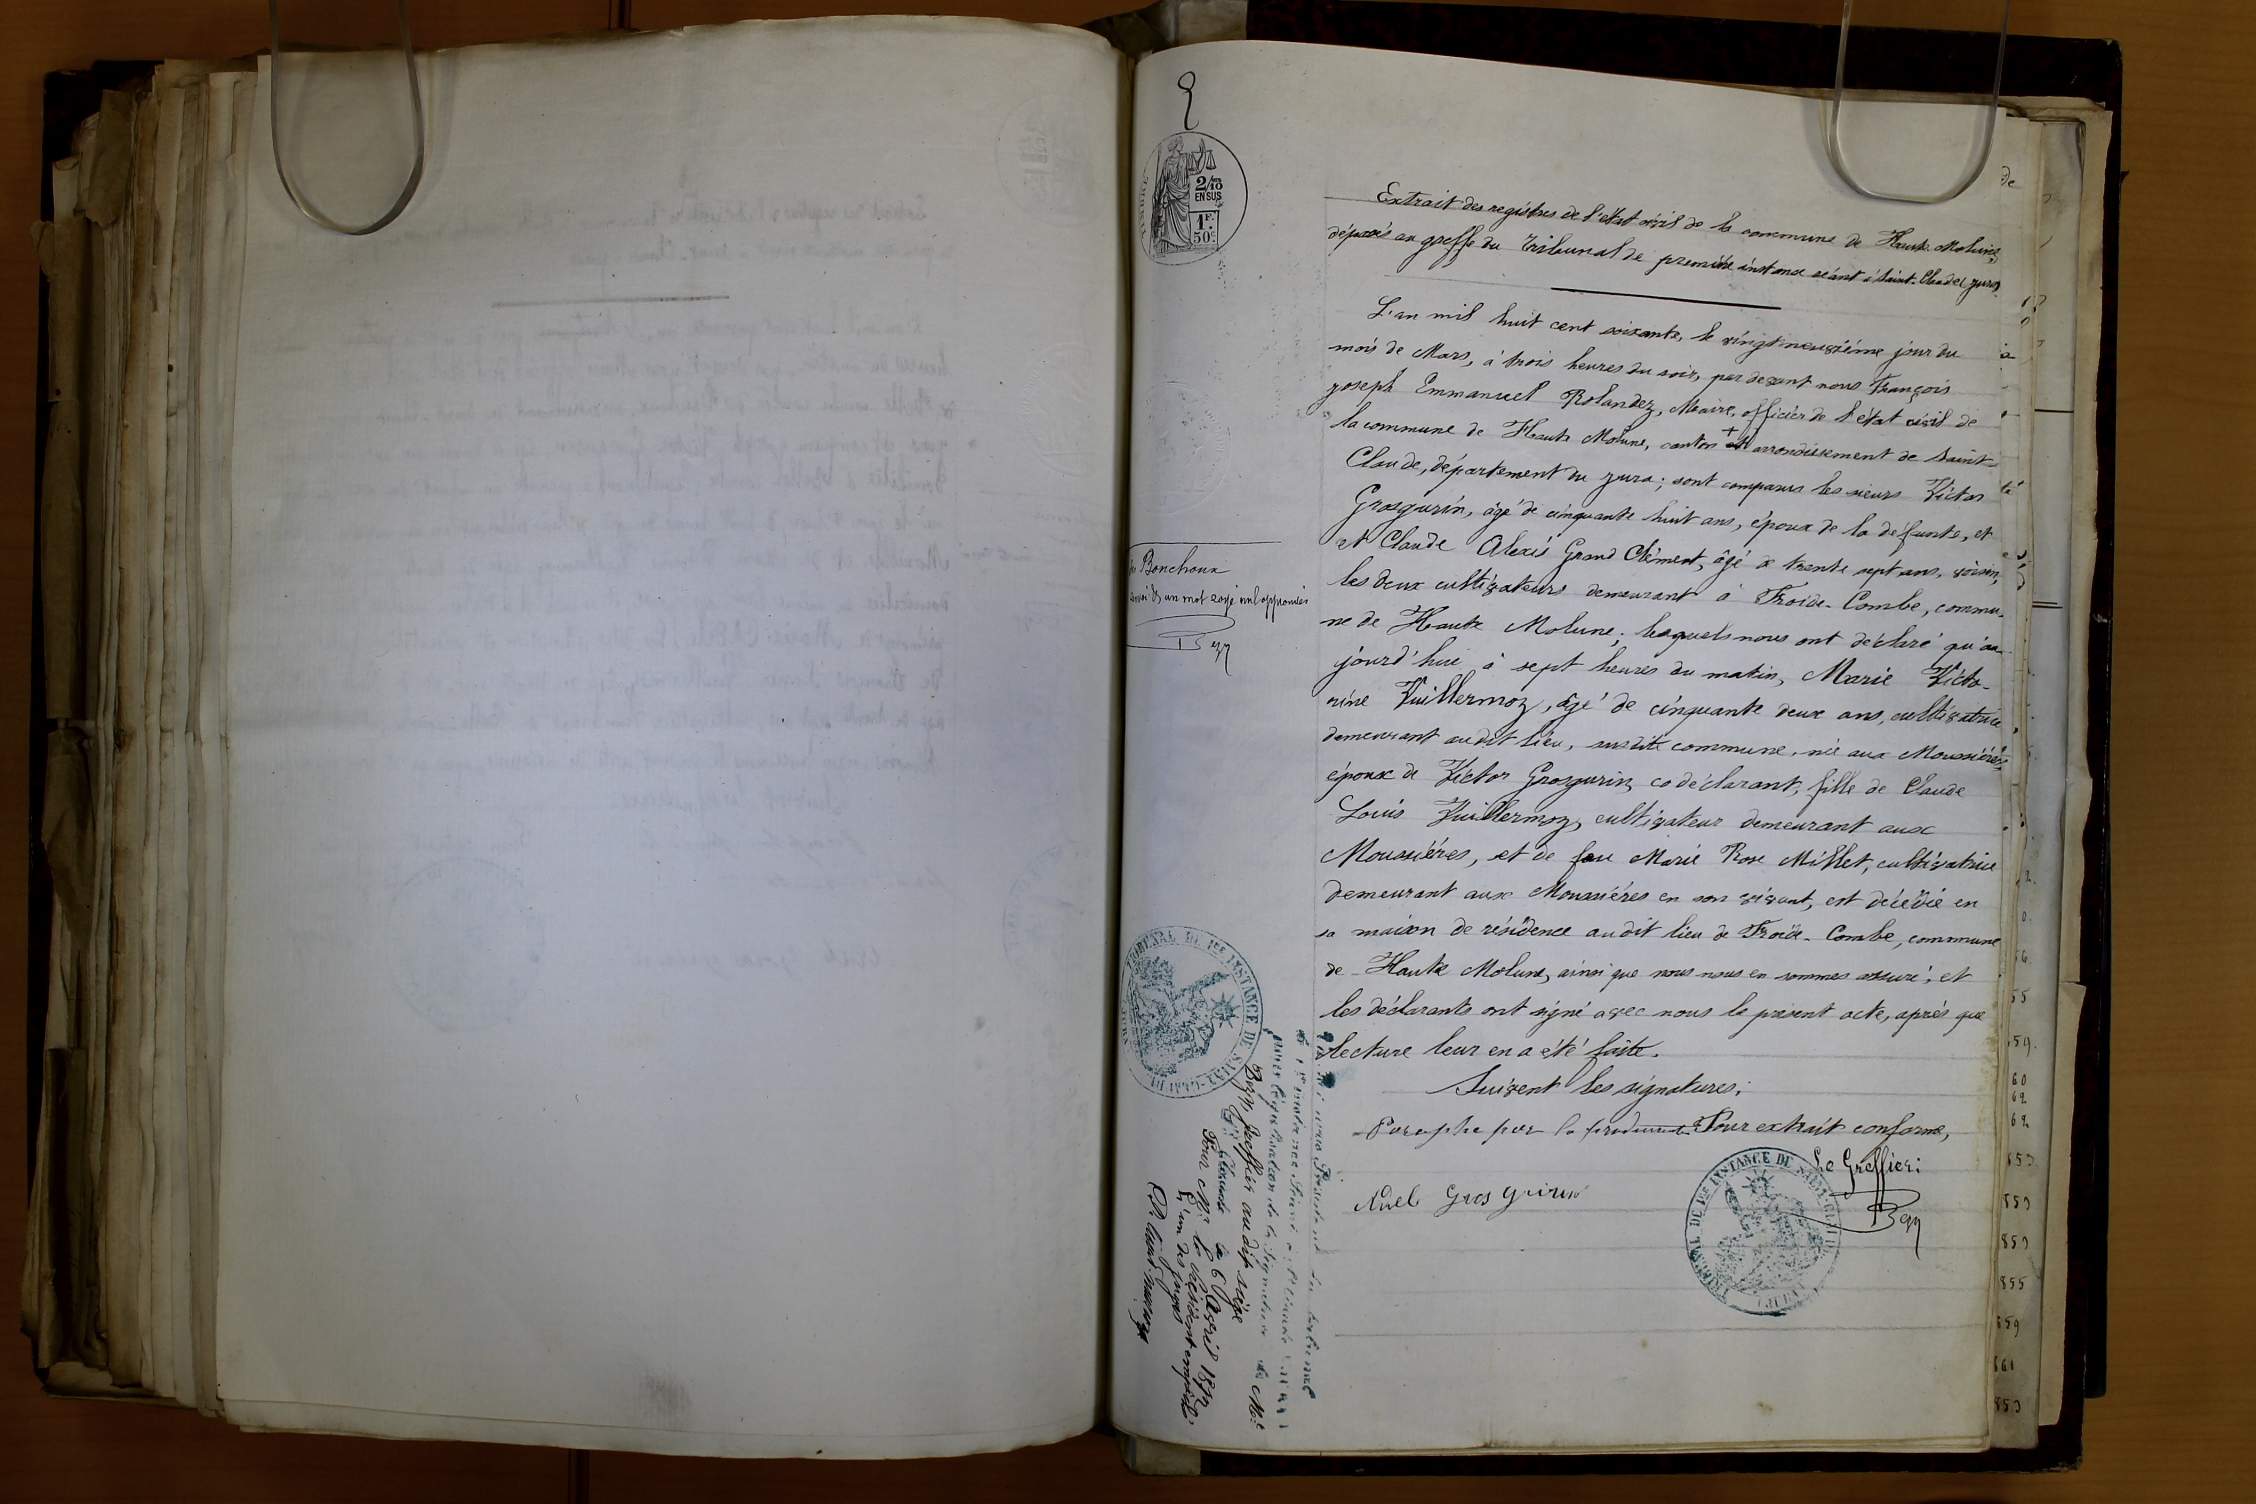 8
TIMBRE
2/10
EN SUS
1F.
50c.
Extrait des registres de l'état civil de la commune de Haute Molune,
déposés au greffe du Tribunal de première instance séant à Saint-Claude (Jura)
L'an mil huit cent soixante, le vingt neuvième jour du
mois de Mars, à trois heures du soir, par devant nous François
Joseph Emmanuel Rolandez, Maire, officier de l'état civil de
la commune de Haute Molune, canton + arrondissement de Saint
Claude, département du Jura; sont comparus les sieurs Victor
Grosgurin, âgé de cinquante huit ans, époux de la défunte, et
et Claude Alexis Grand Clément, âgé de trente sept ans, voisin,
les deux cultivateurs demeurant à Froide-Combe, commu-
ne de Haute Molune; lesquels nous ont déclaré qu'au-
jourd'hui à sept heures du matin, Marie Victo-
rine Vuillermoz, âgé de cinquante deux ans, cultivatrice
demeurant audit lieu, susdite commune, née aux Moussières,
épouse de Victor Grosgurin, codéclarant, fille de Claude
Louis Vuillermoz, cultivateur demeurant aux
Moussières, et de feu Marie Rose Millet, cultivatrice
demeurant aux Moussières en son vivant, est décédée en
sa maison de résidence audit lieu de Froide-Combe, commune
de Haute Molune, ainsi que nous nous en sommes assuré; et
les déclarants ont signé avec nous le présent acte, après que
lecture leur en a été faite.
Suivent les signatures;
Paraphe par la Pour extrait conforme,
Le Greffier:
Gros Gurin
TRIBUNAL DE 1ère INSTANCE DE SAINT-CLAUDE
(JURA)
Bouchoux
un mot rayé nul approuvés
TRIBUNAL DE 1ère INSTANCE DE SAINT-CLAUDE
Président du tribunal
de 1ère instance séant à St Claude
pour légalisation de la signature de Mr
greffier audit siège
St Claude le 6 Avril 1872
Pour Mr le Président empêché,
L'un des juges